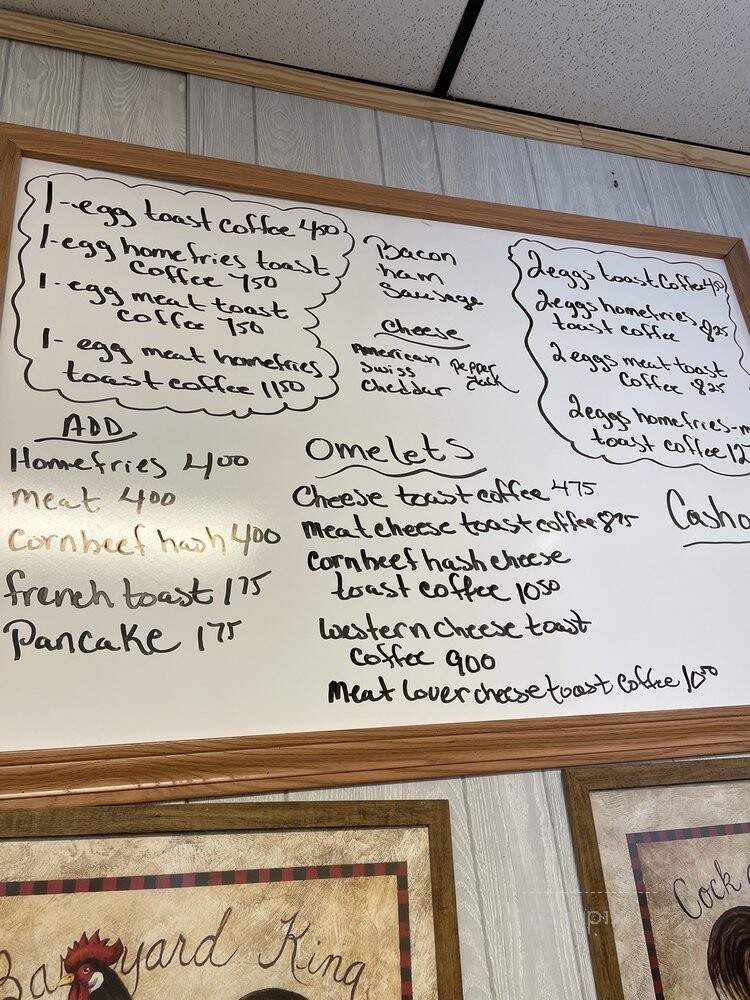 1-egg toast coffee 450
1-egg homefries toast
coffee 750
1-egg meat toast
coffee 750
1- egg meat homefries
toast coffee 1150
Bacon
ham
Sausage
Cheese
American Pepper
Swiss Jack
Cheddar
2eggs toast coffee
2eggs homefries
toast coffee 825
2eggs meat toast
coffee 825
2eggs homefries-m
toast coffee 12
ADD
Homefries 400
meat 400
cornbeef hash 400
french toast 175
Pancake 175
Omelets
Cheese toast coffee 475
Meat cheese toast coffee 875
Cornbeef hash cheese
toast coffee 1050
Western cheese toast
coffee 900
Meat Lover cheese toast coffee 1050
Casho
Barnyard King
Cock